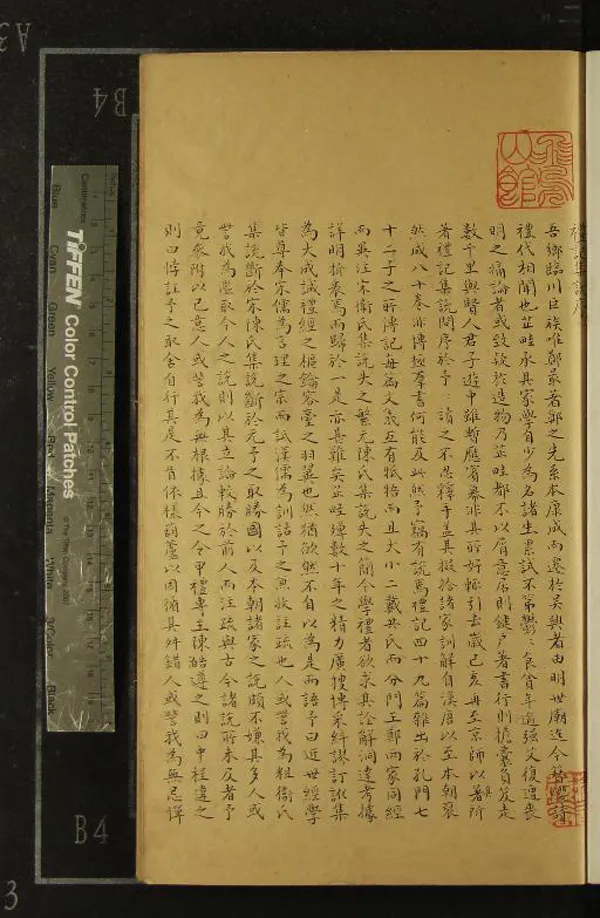 禮記集說序
吾鄉臨川巨族唯鄭最著鄭之先系本康成而遷於吳興者由明世廟迄今
禮代相聞也芷畦承其家學自少為名諸生累試不第鬱鬱食貧年逾強艾復遭喪
明之痛論者或致疑於造物乃芷畦都不以屑意居則鍵戶著書行則擔囊負笈走
數千里與賢人君子遊中雖暫應賓幕非其所好輒引去歲己亥再至京師以著所
著禮記集說問序於予讀之不忍釋手蓋其掇拾諸家訓解自漢唐以至本朝裒
然成八十卷非博極羣書何能及此然予竊有說焉禮記四十九篇雜出於孔門七
十二子之所傳記每篇文義互有牴牾而且大小二戴母氏而分門王鄭兩家同經
而異注宋衛氏集說失之繁元陳氏集說失之簡今學禮者欲求其詮解洞達考據
詳明折衷焉而歸於一是亦其難矣芷畦殫數十年之精力廣搜博采糾謬訂訛集
為大成誠禮經之樞鑰容臺之羽翼也然猶欿然不自以為是而語予曰近世經學
皆尊奉宋儒為言理之宗而詆漢儒為訓詁予之兼收註疏也人或訾我為粗衛氏
集說斷於宋陳氏集說斷於元予之取勝國以及本朝諸家之說頗不嫌其多人或
訾我為濫取今人之說則以其立論較勝於前人而注疏與古今諸說所未及者予
竟黍附以己意人或訾我為無根據且今之令甲禮專主陳澔遵之則曰中程違之
則曰悖註予之取舍自行其是不肯依樣葫蘆以因循其舛錯人或訾我為無忌憚
TIFFEN Color Control Patches
Blue
Cyan
Green
Yellow
Red
Magenta
White
3/Color
Black
Centimetres
B4
B4
A3
3